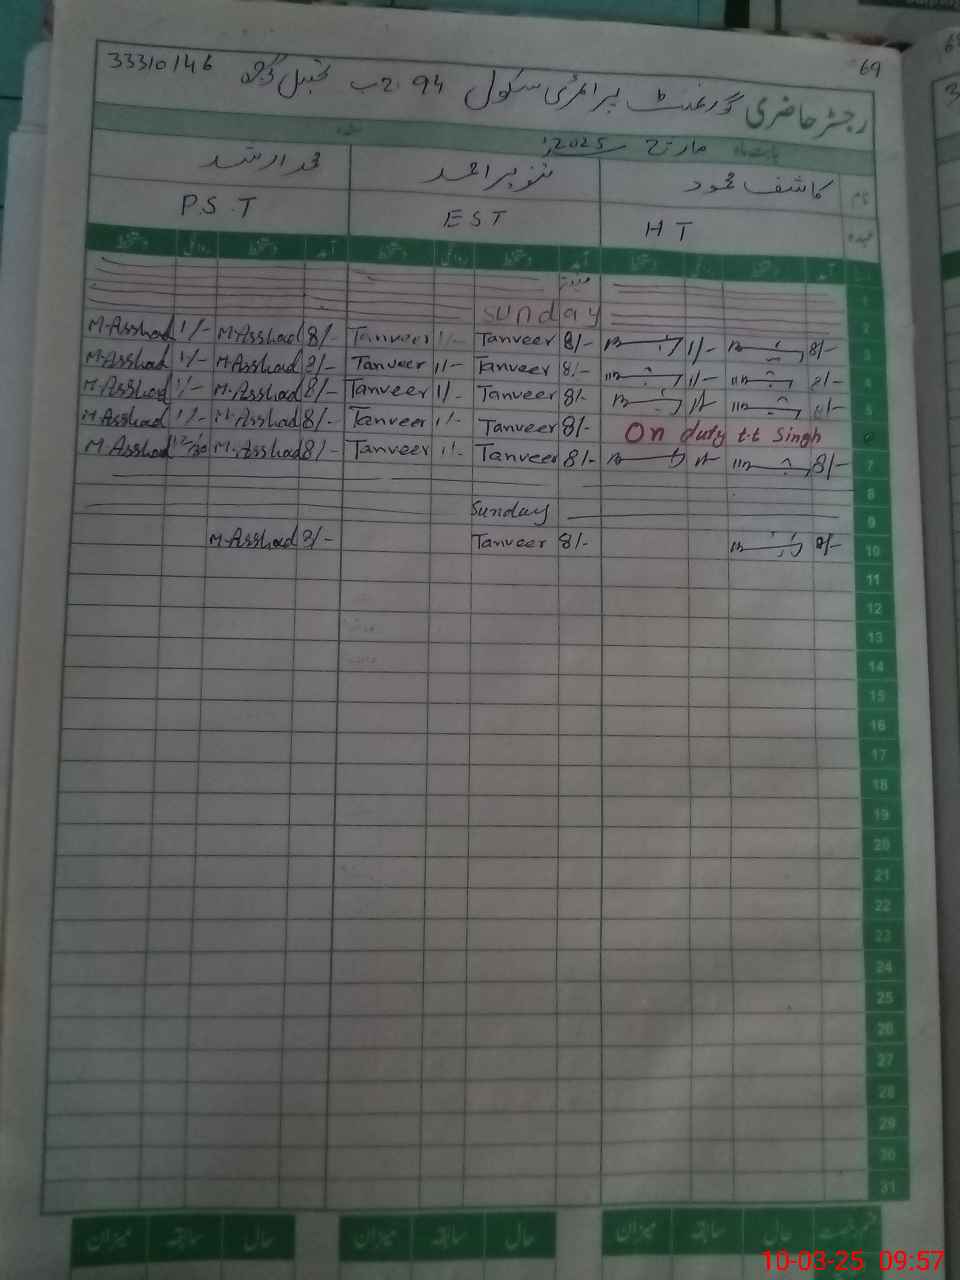 69
رجسٹر حاضری گورنمنٹ پرائمری سکول 94 ۔2ب تحصیل 33310146
بابت ماہ مارچ 2025ء
نام کاشف محمود تنویر احمد محمد ارشد
عہدہ HT EST P.S.T
آمد دستخط روانگی دستخط آمد دستخط روانگی دستخط آمد دستخط روانگی دستخط
1
Sunday 2
M.Asshad 1/- M.Asshad 8/- Tanveer 1/- Tanveer 8/- 1/- 8/- 3
M.Asshad 1/- M.Asshad 8/- Tanveer 1/- Tanveer 8/- 1/- 8/- 4
M.Asshad 1/- M.Asshad 8/- Tanveer 1/- Tanveer 8/- 8/- 5
M.Asshad 1/- M.Asshad 8/- Tanveer 1/- Tanveer 8/- On duty t.t Singh 6
M.Asshad 12/30 M.Asshad 8/- Tanveer 1/- Tanveer 8/- 8/- 7
8
Sunday 9
M.Asshad 8/- Tanveer 8/- 8/- 10
11
12
13
14
15
16
17
18
19
20
21
22
23
24
25
26
27
28
29
30
31
قسم رخصت حال سابقہ میزان حال سابقہ میزان حال سابقہ میزان
10-03-25 09:57